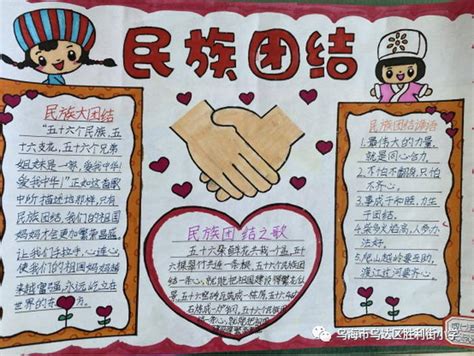 民族团结
民族大团结
"五十六个民族,五
十六支花,五十六个兄弟
姐妹是一家,爱我中华!
爱我中华!"正如这首歌
中所描述培那样,只有
民族团结,我们的祖国
妈妈才会更加繁荣昌盛,
让我们手拉手,心连心,
使我们的祖国妈妈越
来越富强,永远屹立在
世界的东方。
民族团结之歌
五十六朵鲜花共栽一个盆,五十
六棵翠竹共连一条根,五十六个民族团结
一条心,
民族团结谚语
1.最伟大的力量,
就是同心合力。
2.不怕不翻身,只怕
不齐心。
3.事成于和睦,力生
于团结。
4.柴多火焰高,人多办
法好。
5.爬山越岭要互助,
渡江过河要齐心。
乌海市乌达区胜利街小学